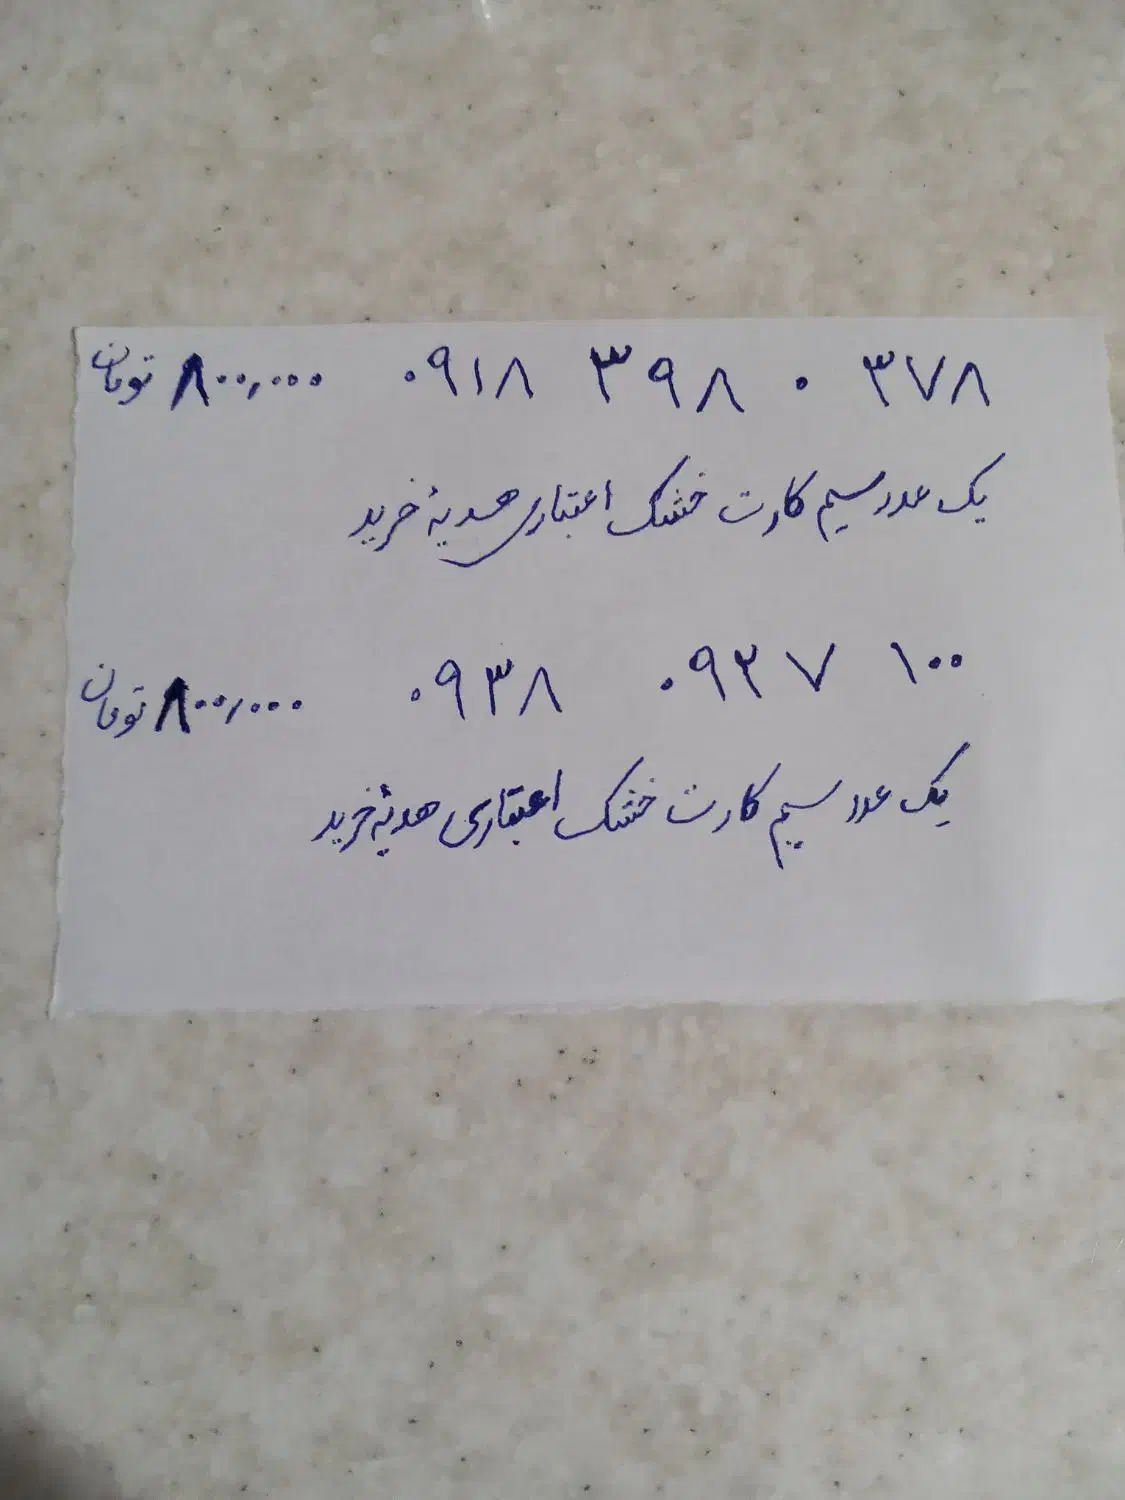 ۰۹۱۸ ۳۹۸ ۰ ۳۷۸ ۸۰۰,۰۰۰ تومان
یک عدد سیم کارت خشک اعتباری هدیۀ خرید
۰۹۳۸ ۰۹۳۷ ۱۰۰ ۸۰۰,۰۰۰ تومان
یک عدد سیم کارت خشک اعتباری هدیۀ خرید